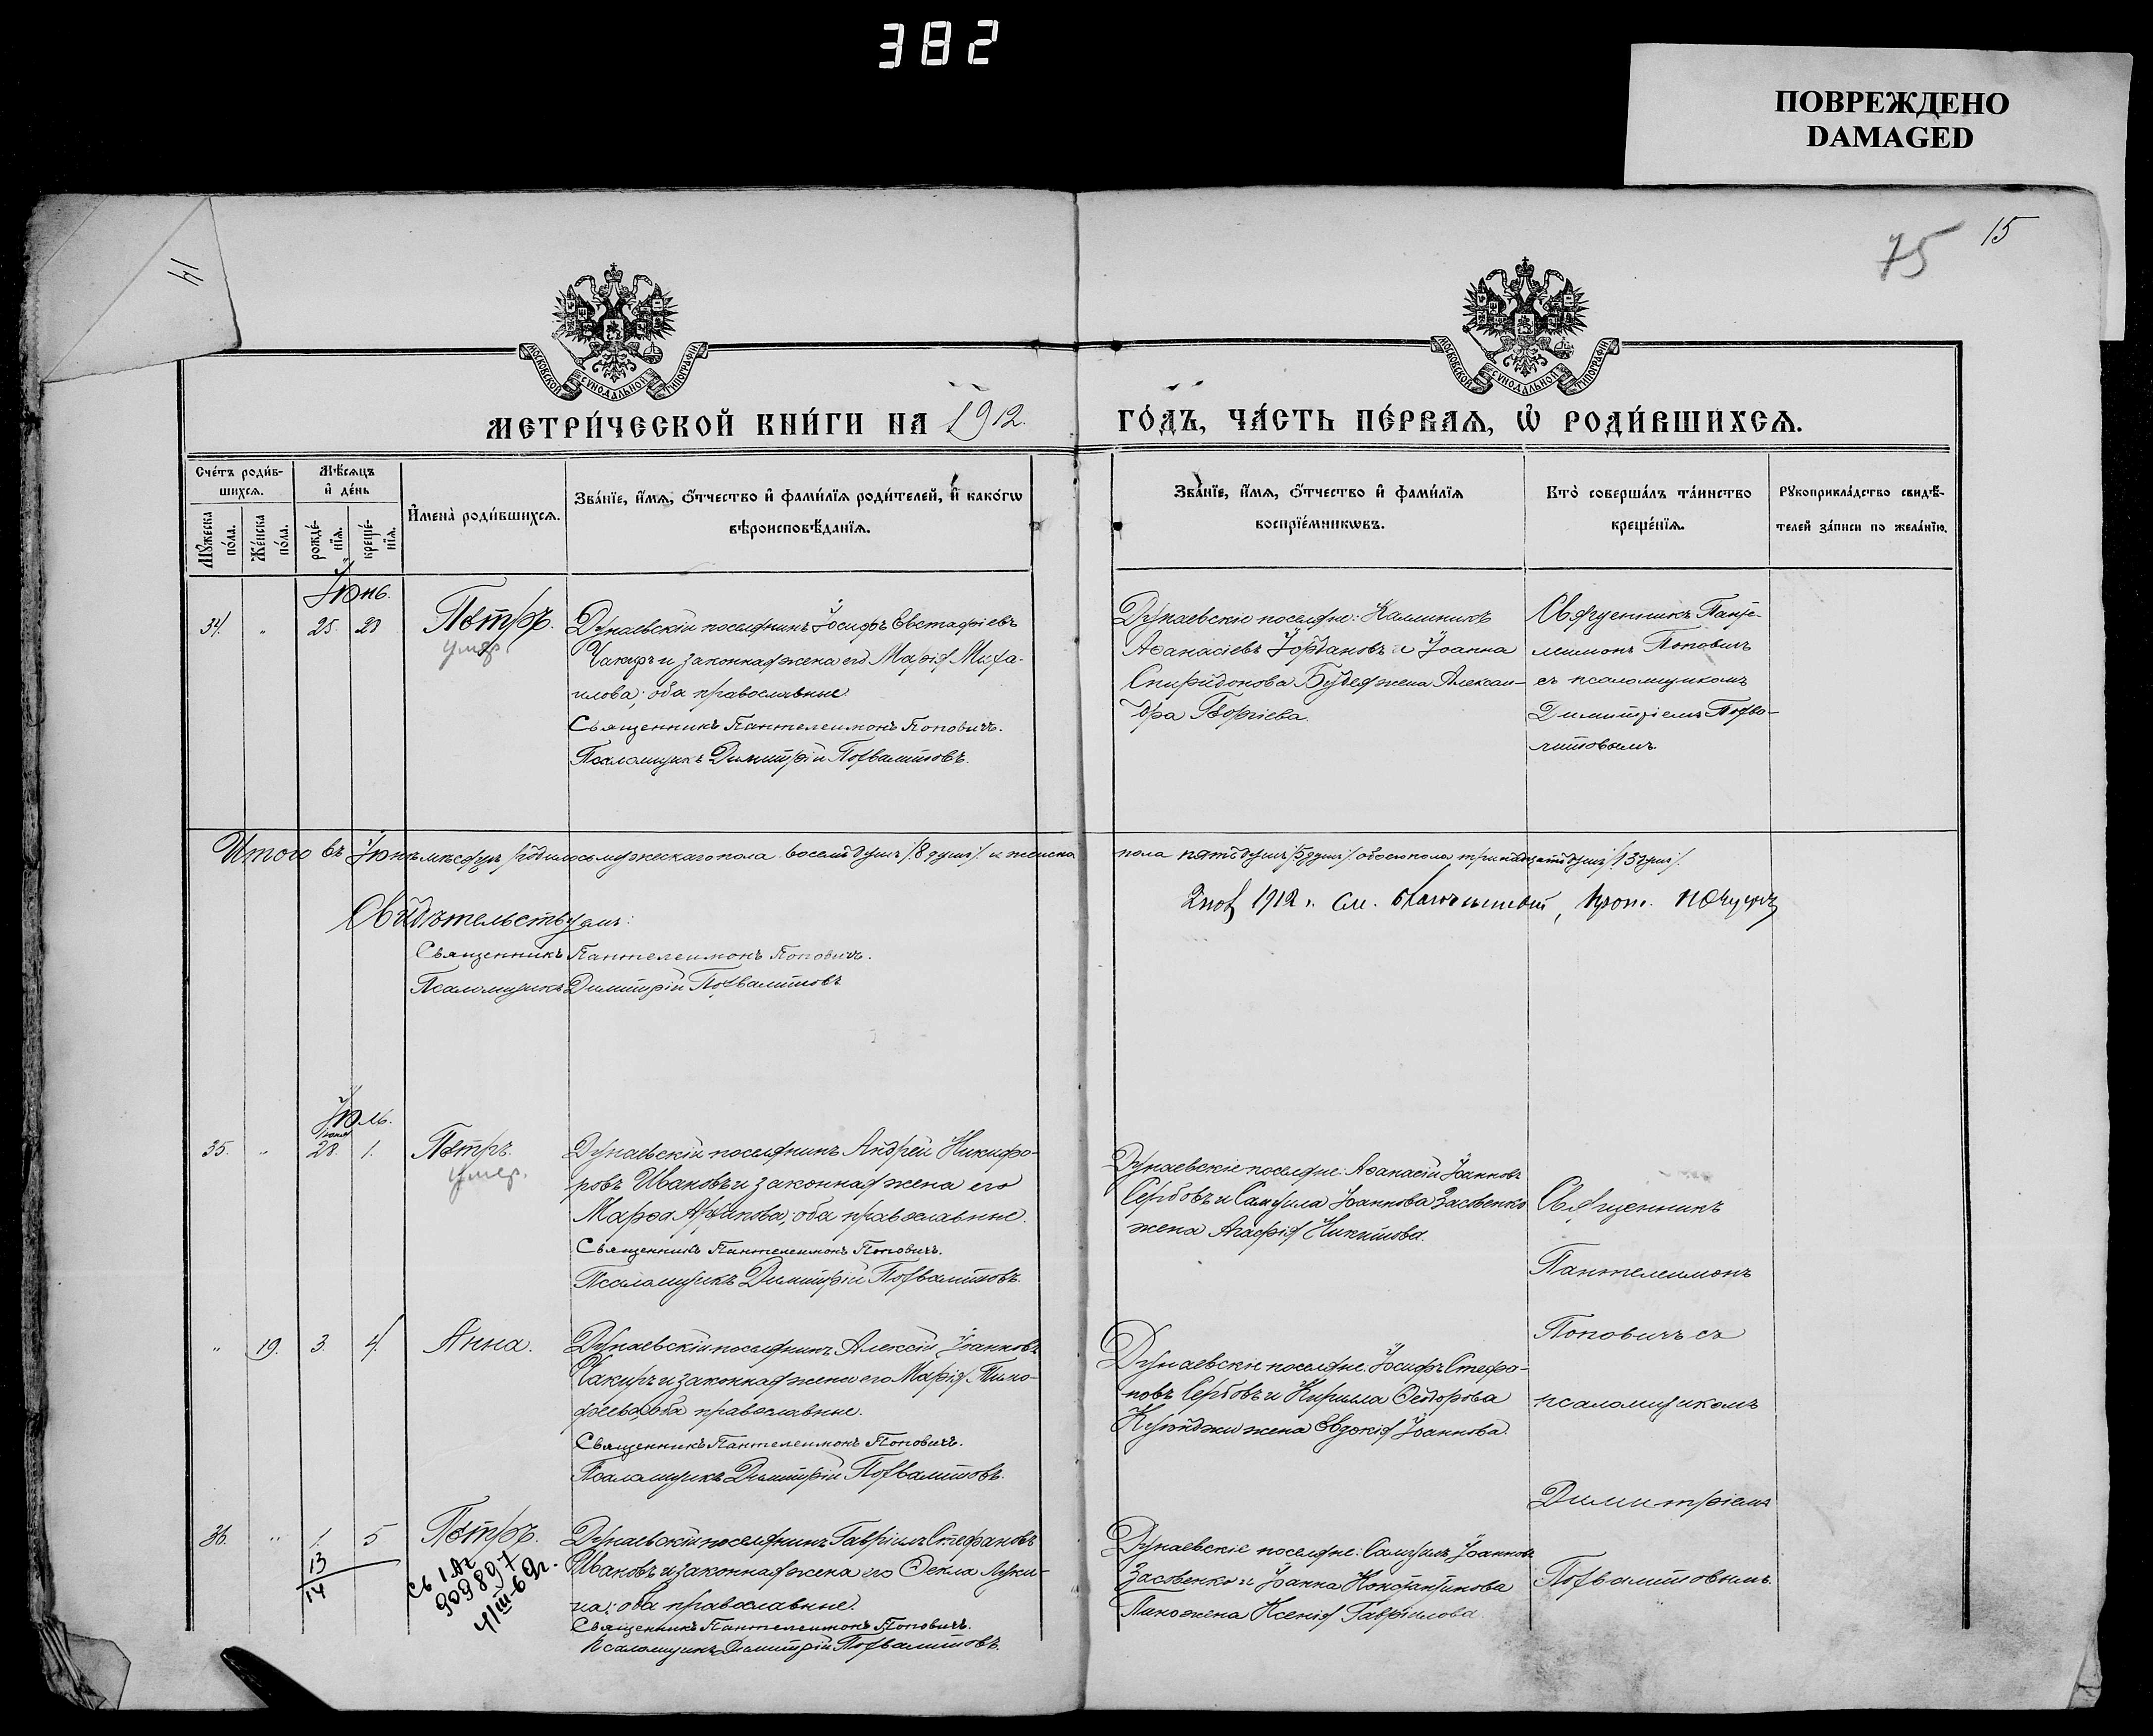 382
ПОВРЕЖДЕНО
DAMAGED
14
75
15
МОСКОВСКОЙ СУНОДАЛЬНОЙ ТИПОГРАФІИ
МОСКОВСКОЙ СУНОДАЛЬНОЙ ТИПОГРАФІИ
МЕТРИ́ЧЕСКОЙ КНИ́ГИ НА 1912.
ГО́ДЪ, ЧА́СТЬ ПЕ́РВАѦ, Ѡ҆ РОДИ́ВШИХСѦ.
Сче́тъ роди́в-
шихсѧ.
Мѣ́сѧцъ
и҆ де́нь
И҆мена̀ роди́вшихсѧ.
Зва́нїе, и҆́мѧ, о҆́тчество и҆ фами́лїѧ роди́телей, и҆ како́гѡ
вѣроисповѣ́данїѧ.
Мꙋ́жеска
по́ла.
Же́нска
по́ла.
рожде́-
нїѧ.
креще́-
нїѧ.
Зва́нїе, и҆́мѧ, о҆́тчество и҆ фами́лїѧ
воспрїе́мникѡвъ.
Кто̀ соверша́лъ та́инство
креще́нїѧ.
Рꙋкоприкла́дство свидѣ́-
телей за́писи по жела́нїю.
Іюнь.
34. " 25. 29 Петръ.
умер.
Дунаевскій поселянинъ Іосифъ Евстафіевъ
Чакиръ и законная жена его Марія Миха-
илова; оба православные
Священникъ Пантелеимонъ Поповичъ.
Псаломщикъ Димитрій Похвалитовъ.
Дунаевскіе поселяне: Каллиникъ
Аѳанасіевъ Іордановъ и Іоанна
Спиридонова жена Алексан-
дра Георгіева.
Священникъ Панте-
лимонъ Поповичъ
съ псаломщикомъ
Димитріемъ Похва-
литовымъ.
Итого въ Іюнѣ мѣсяцѣ родилось мужескаго пола восемь душъ /8 душъ/. и женска
пола пять душъ /5 душъ/. обоего пола тринадцать душъ /13 душъ/.
1912 г. См.
Свидѣтельствуемъ:
Священникъ Пантелеимонъ Поповичъ.
Псаломщикъ Димитрій Похвалитовъ
Іюль.
Іюня
35. " 28. 1. Петръ.
умер.
Дунаевскій поселянинъ Андрей Никифо-
ровъ Ивановъ и законная жена его
Марѳа; оба православные.
Священникъ Пантелеимонъ Поповичъ.
Псаломщикъ Димитрій Похвалитовъ.
Дунаевскіе поселяне: Аѳанасій Іоанновъ
Сербовъ и Самуила Іоаннова Засовенко
жена Агафія Никитова.
Священникъ
Пантелеимонъ
Поповичъ съ
псаломщикомъ
Димитріемъ
Похвалитовымъ.
" 19. 3. 4. Анна.
Дунаевскій поселянинъ Алексій Іоанновъ
Чакиръ и законная жена его Марія Тимо-
феева, оба православные.
Священникъ Пантелеимонъ Поповичъ.
Псаломщикъ Димитрій Похвалитовъ.
Дунаевскіе поселяне: Іосифъ Стефа-
новъ Сербовъ и Кирилла Ѳедорова
жена Евдокія Іоаннова.
36. " 1. 5 Петръ.
13
14
909897
4/III-69г.
Дунаевскій поселянинъ Гавріилъ Стефановъ
Ивановъ и законная жена его Ѳекла Луки-
на; оба православные.
Священникъ Пантелеимонъ Поповичъ.
Псаломщикъ Димитрій Похвалитовъ.
Дунаевскіе поселяне: Самуилъ Іоанновъ
Засовенко и Іоанна Константинова
жена Ксенія Гавріилова.